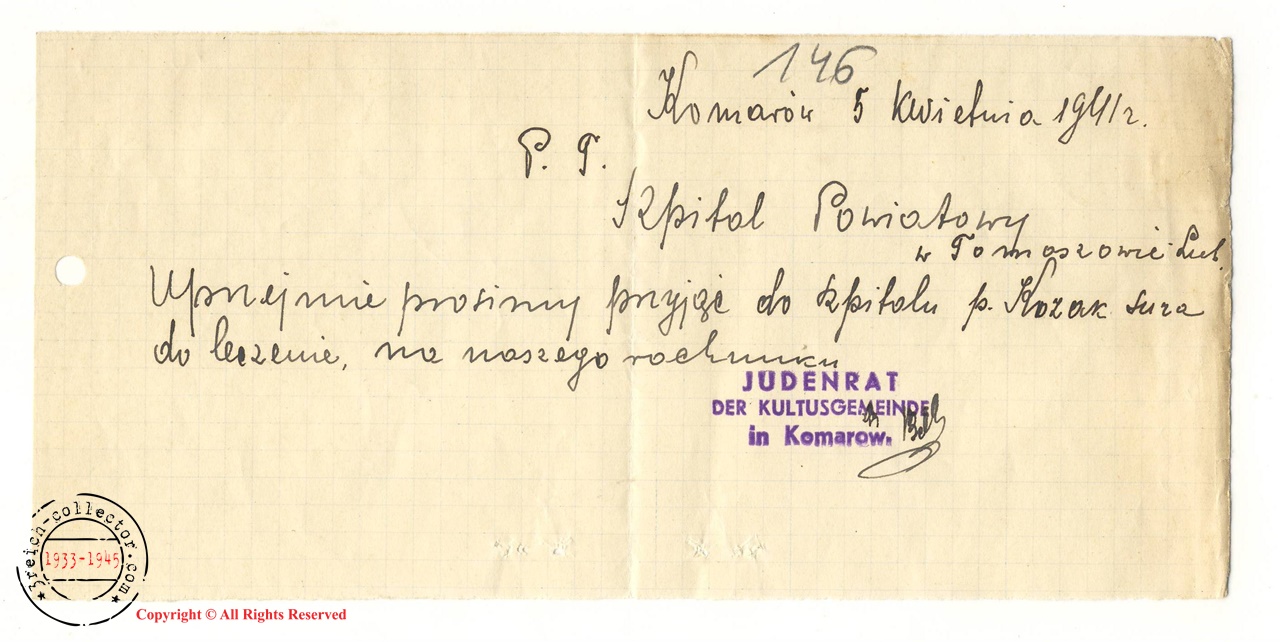 146
Komarów 5 Kwietnia 1941 r.
P. T.
Szpital Powiatowy
w Tomaszowie Lub.
Uprzejmie prosimy przyjąć do szpitalu p. Kozak Sura
do leczenie, na naszego rachunku
JUDENRAT
DER KULTUSGEMEINDE
in Komarow.
3reich-collector.com
1933-1945
Copyright © All Rights Reserved